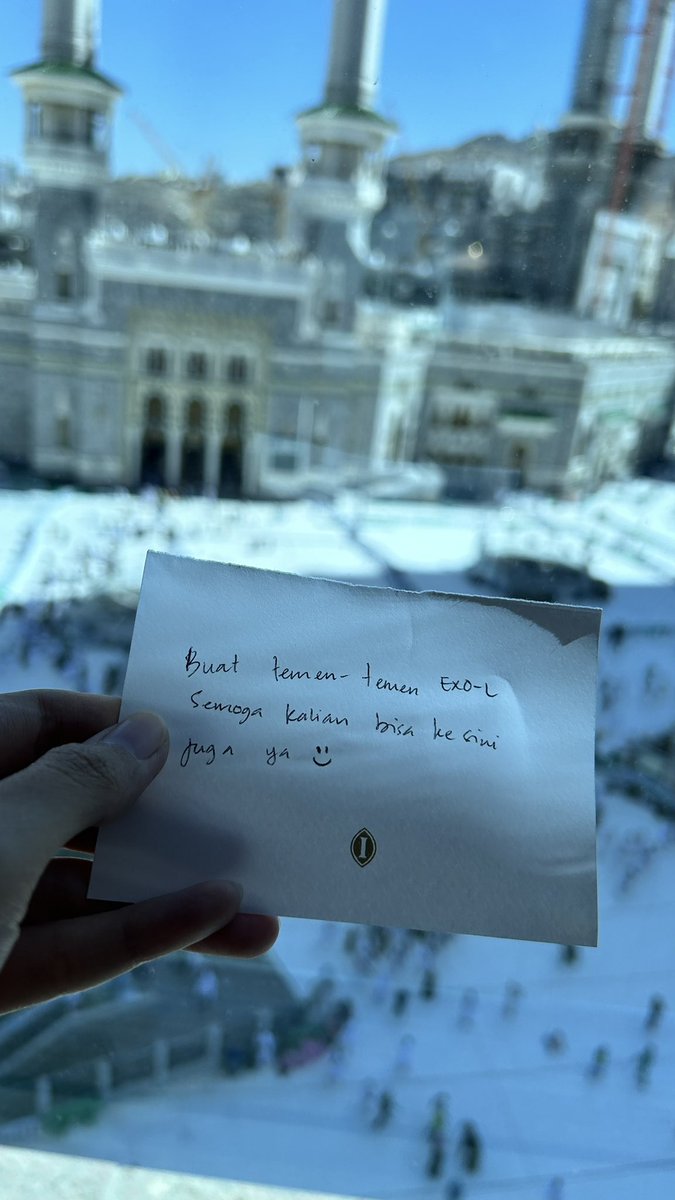 Buat temen-temen EXO-L
Semoga kalian bisa ke sini
juga ya
I